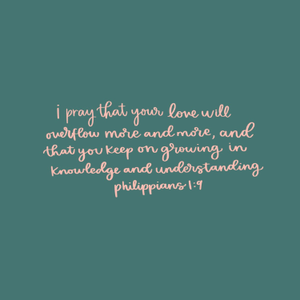 i pray that your love will
overflow more and more, and
that you keep on growing in
knowledge and understanding
philippians 1:9